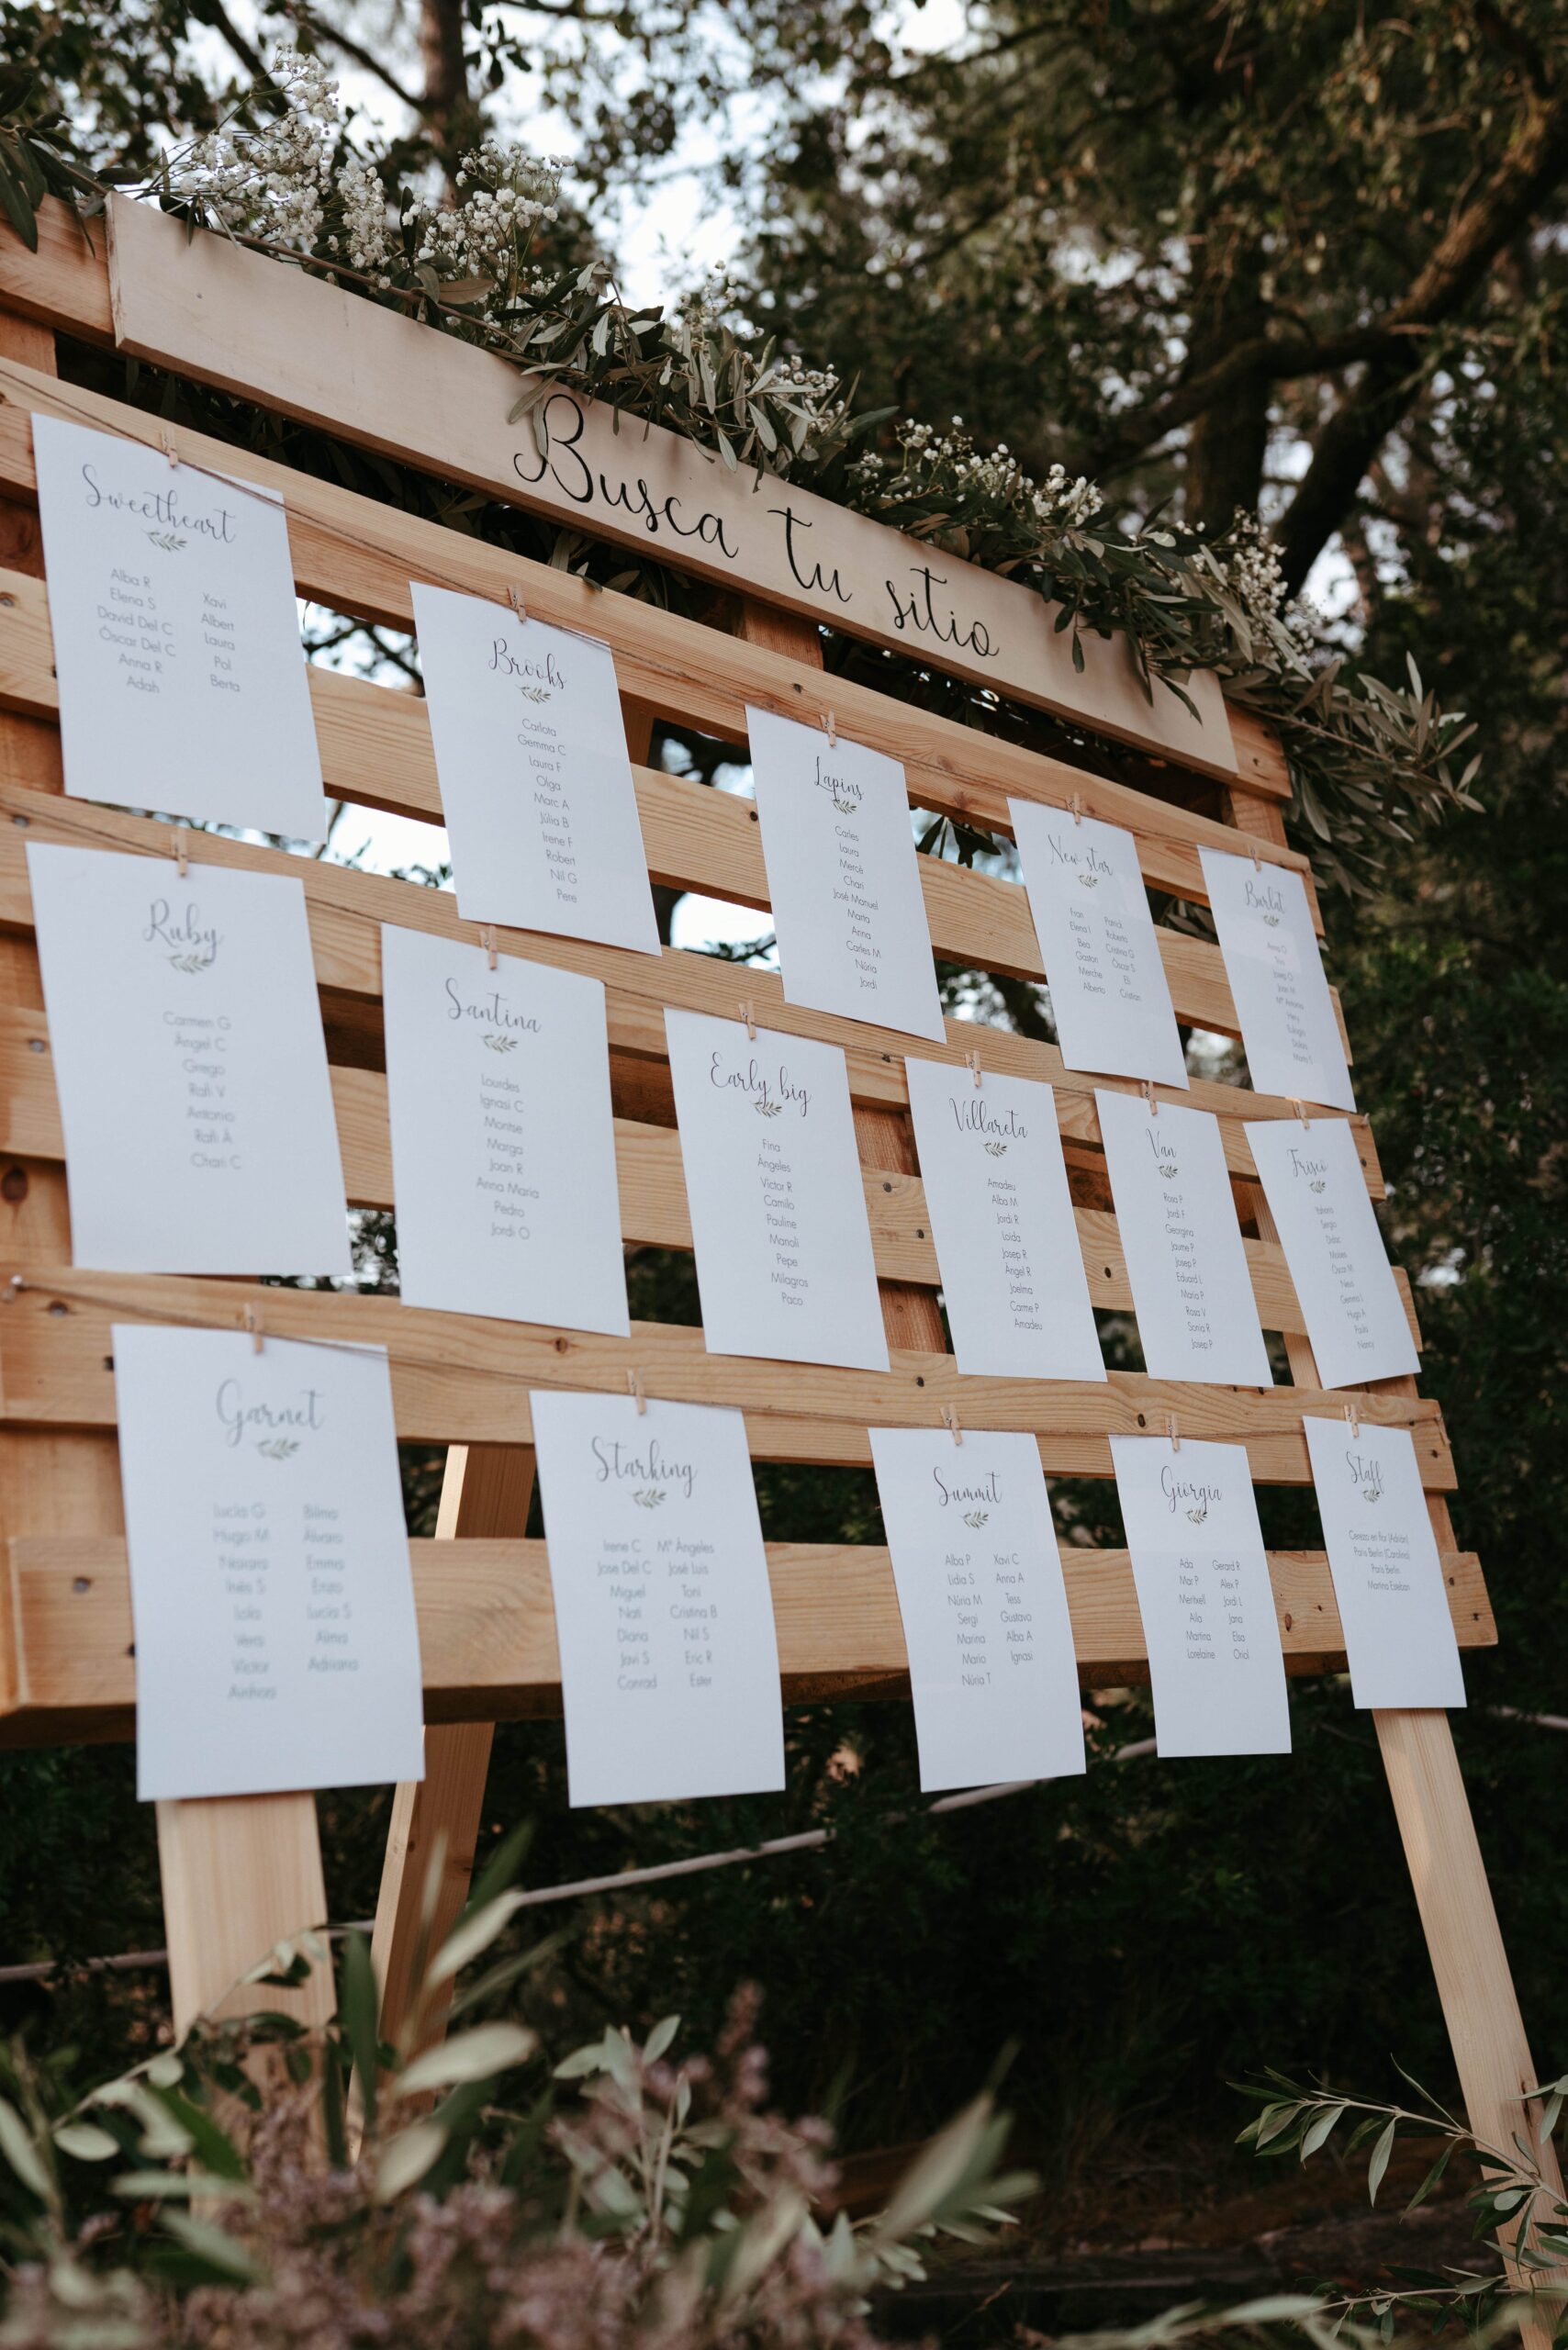 Busca tu sitio
Sweetheart
Alba R
Elena S
David Del C
Óscar Del C
Anna R
Adah
Xavi
Albert
Laura
Pol
Berta
Brooks
Carlota
Gemma C
Laura F
Olga
Marc A
Júlia B
Irene F
Robert
Nil G
Pere
Lapins
Carles
Laura
Mercè
Chari
José Manuel
Marta
Anna
Carles M
Núria
Jordi
New star
Fran
Elena I
Bea
Gaston
Merche
Alberto
Patrick
Roberto
Cristina G
Óscar S
Eli
Cristian
Burlat
Josep O
Juan M
Mª Antonia
Ruby
Carmen G
Àngel C
Griego
Rafi V
Antonio
Rafi À
Chari C
Santina
Lourdes
Ignasi C
Montse
Marga
Joan R
Anna Maria
Pedro
Jordi O
Early big
Fina
Àngeles
Victor R
Camilo
Pauline
Manoli
Pepe
Milagros
Paco
Villareta
Amadeu
Alba M
Jordi R
Loida
Josep R
Àngel R
Joelma
Carme P
Amadeu
Van
Rosa P
Jordi F
Georgina
Jaume P
Josep P
Eduard L
Maria P
Rosa V
Sonia R
Josep P
Frisco
Sergio
Moises
Óscar M
Neus
Gemma L
Hugo A
Paula
Nancy
Garnet
Lucía G
Hugo M
Naiara
Inés S
Lola
Vera
Victor
Ainhoa
Bilma
Álvaro
Emma
Enzo
Lucia S
Alma
Adriana
Starking
Irene C
Jose Del C
Miguel
Nati
Diana
Javi S
Conrad
Mª Àngeles
José Luis
Toni
Cristina B
Nil S
Eric R
Ester
Summit
Alba P
Lidia S
Núria M
Sergi
Marina
Mario
Núria T
Xavi C
Anna A
Tess
Gustavo
Alba A
Ignasi
Giorgia
Ada
Mar P
Meritxell
Aila
Martina
Lorelaine
Gerard R
Alex P
Jordi L
Jana
Elsa
Oriol
Staff
Cereza en flor (Adrián)
Paris Berlin (Carolina)
Paris Berlin
Martina Esteban